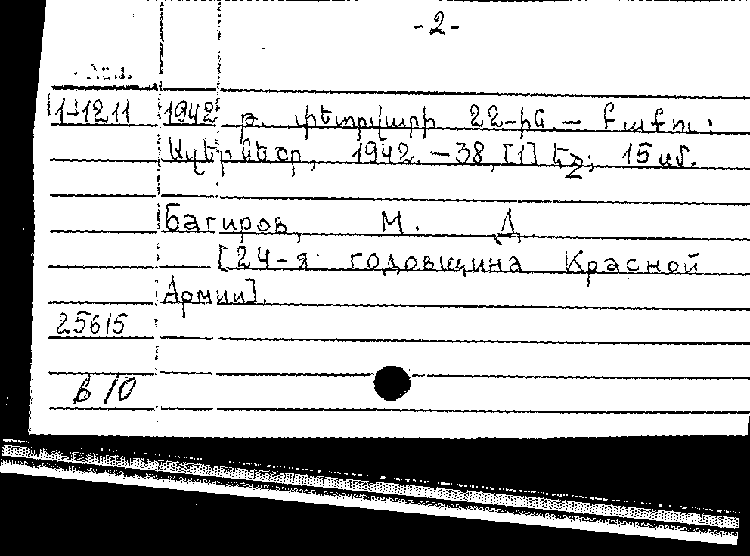 -2-
1-1211 1942 թ. փետրվարի 22-ին — Բաքու:
Ազերնեշր, 1942. – 38, [1] եջ; 15 սմ.
Багиров, М. Д.
[24-я годовщина Красной
Армии].
25615
В 10